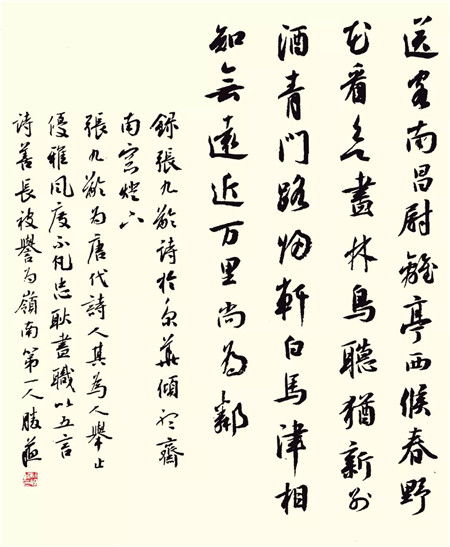 送客南昌尉離亭西候春野
花看欲盡林鳥聽猶新別
酒青門路歸軒白馬津相
知無遠近万里尚為鄰
錄張九齡詩於京華傾齋
南窗燈下
張九齡為唐代詩人其為人舉止
優雅風度不凡忠耿盡職以五言
詩善長被譽為嶺南第一人